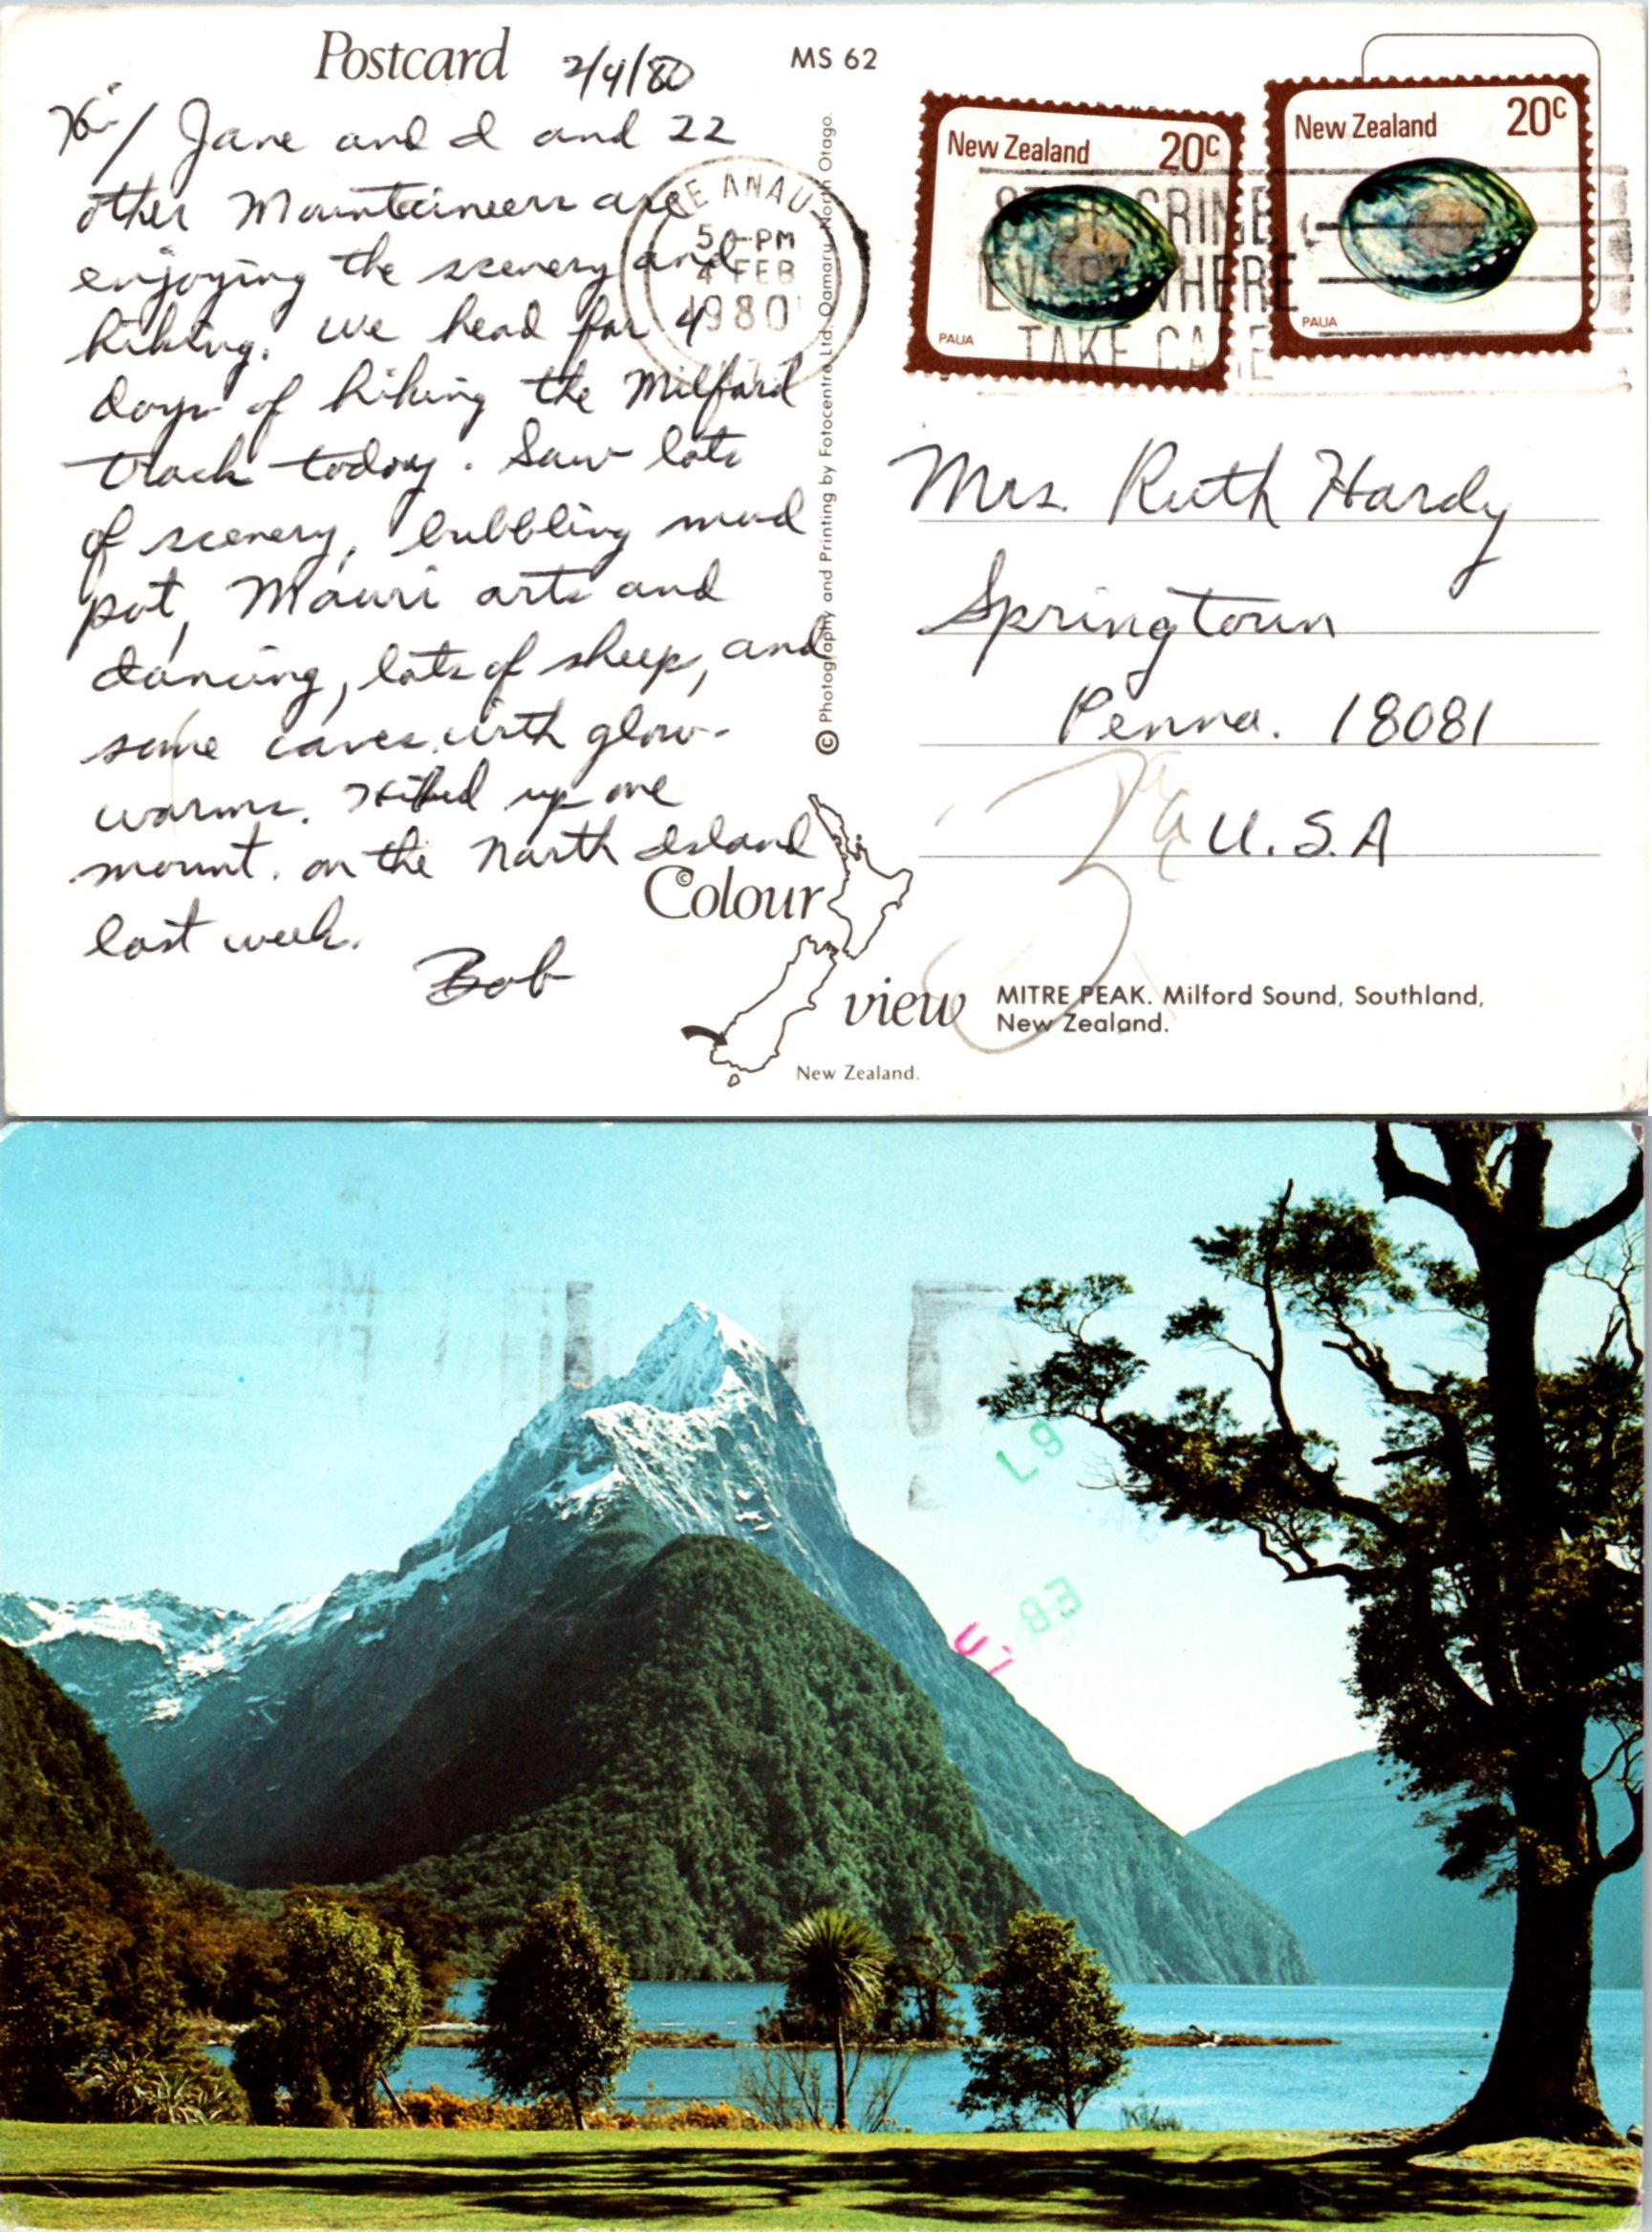 Postcard
2/4/80
MS 62
Hi/ Jane and I and 22
other Mountaineers are
enjoying the scenery and
hiking. We head for 4
days of hiking the Milford
track today. Saw lots
of scenery, bubbling mud
pot, Mauri arts and
dancing, lots of sheep, and
some caves with glow-
worms. Hiked up one
mount. on the North Island
last week.
Bob
TE ANAU
5 - PM
4 FEB
1980
© Photography and Printing by Fotocentre Ltd. Oamaru, North Otago.
New Zealand 20c
PAUA
New Zealand 20c
PAUA
EVERYWHERE
TAKE CARE
Mrs. Ruth Hardy
Springtown
Penna. 18081
U.S.A
Colour
©
view
New Zealand.
MITRE PEAK. Milford Sound, Southland,
New Zealand.
L9
83